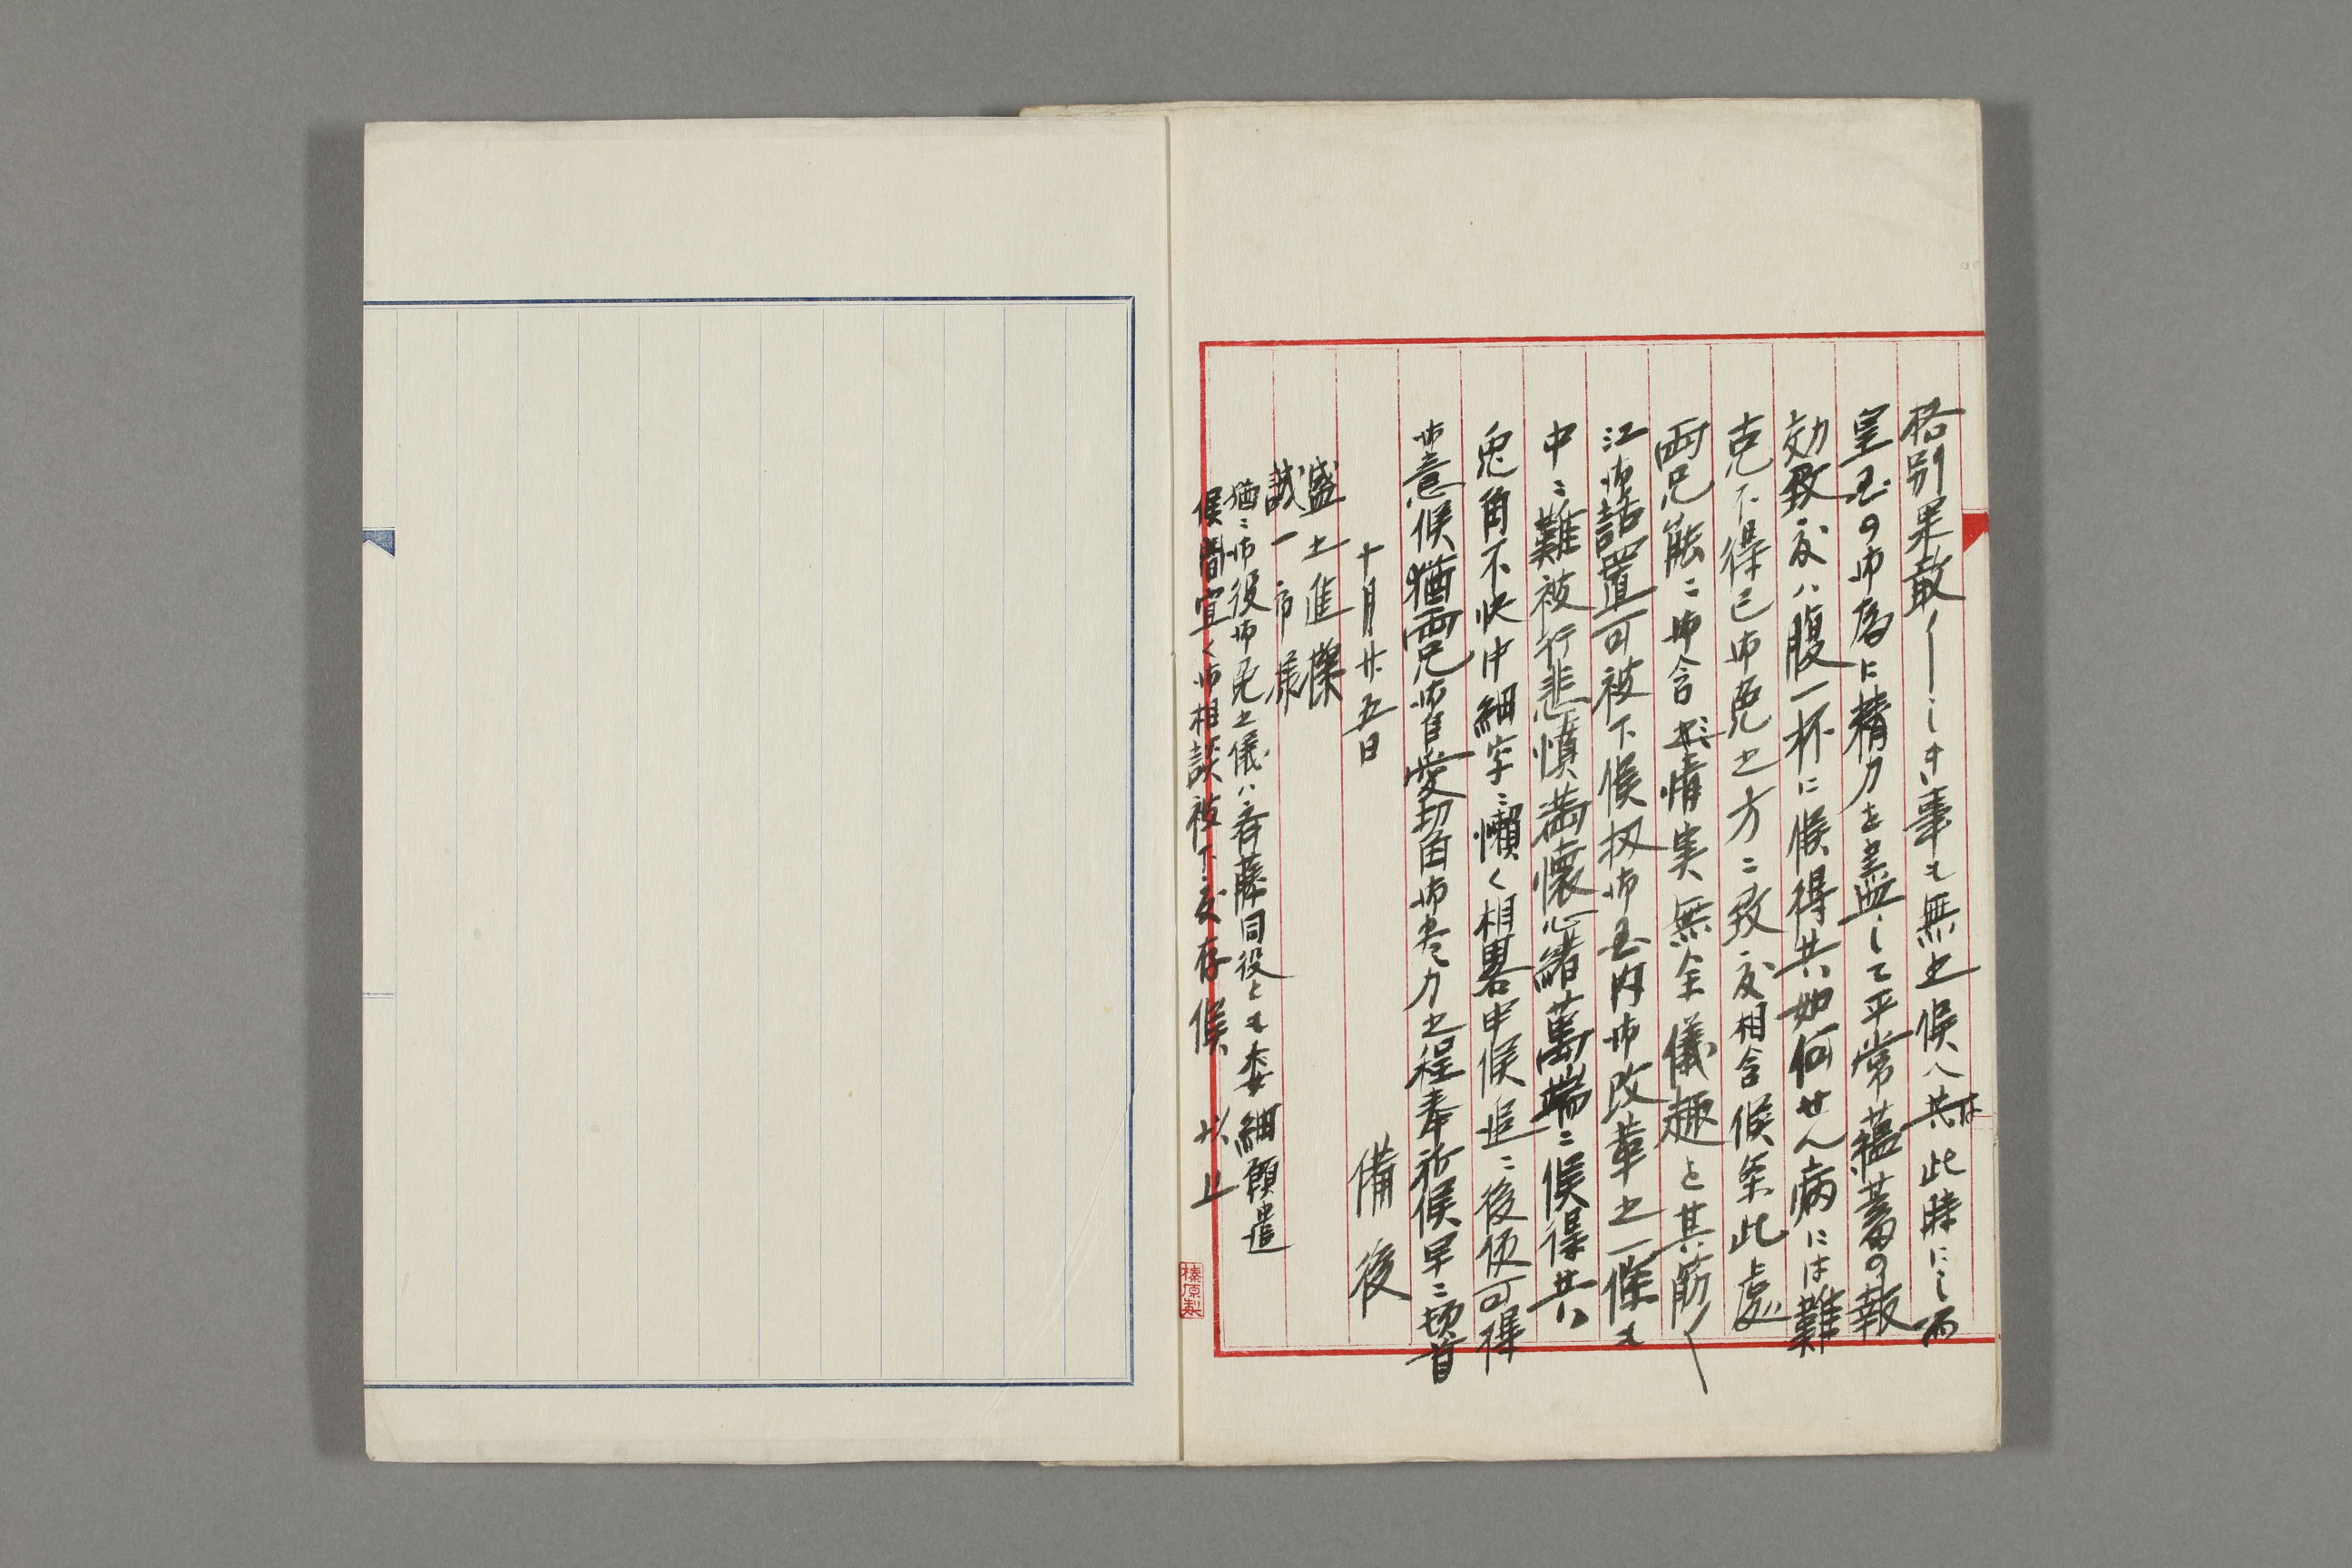 格別果敢〱しき事も無之候へ共は此時にし而
皇国の御為に精力を盡して平常蘊蓄の報
効致度ハ腹一杯に候得共如何せん病には難
克不得已御免之方ニ致度相含候条此處
両兄能ニ御含形情実無余儀趣と其筋〱
江御詰置可被下候扨御国内御改革之一條も
中ニ難被行悲憤満懐心緒萬端ニ候得共
兎角不快中細字ニ懶く相畧申候追ニ後便可得
御意候猶両兄御自愛切角御尽力之程奉祈候早ニ頓首
十月廿五日
備後
盛之進様
誠一市様
猶ニ御役御免之儀ハ斉藤同役とも委細願遣
候間宜く御相談被下度存候 以上
榛原製